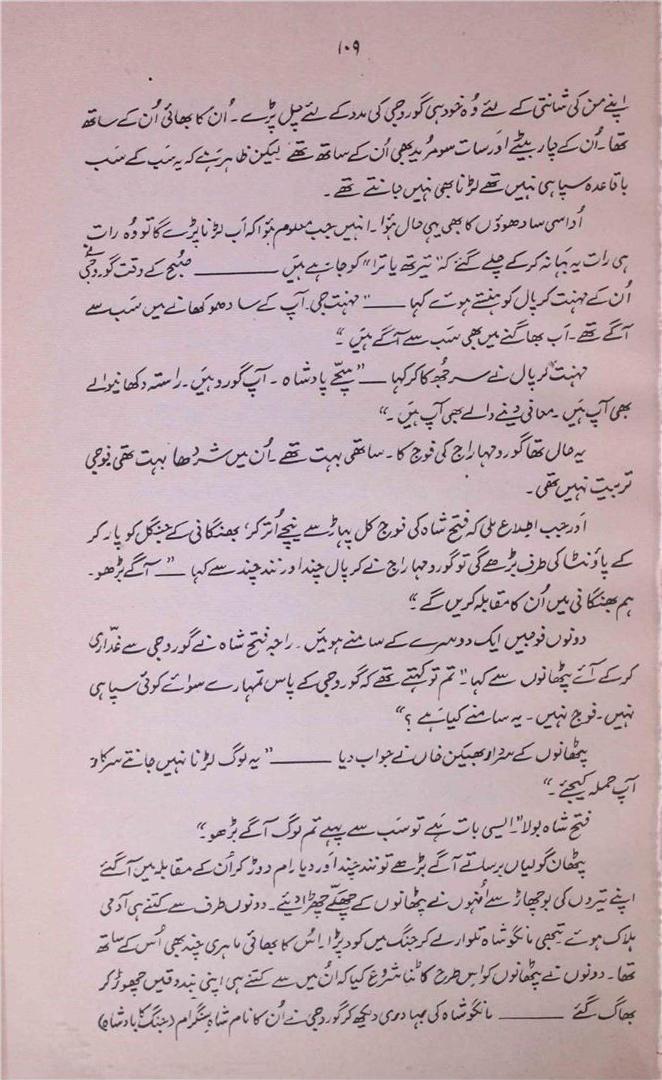 ۱۰۹
اپنے من کی شانتی کے لئے وُہ خود ہی گوروجی کی مدد کے لئے چل پڑے۔ اُن کا بھائی اُن کے ساتھ
تھا۔ اُن کے چار بیٹے اور سات سو مُرید بھی اُن کے ساتھ تھے لیکن ظاہر ہَے کہ یہ سَب کے سَب
باقاعدہ سپاہی نہیں تھے لڑنا بھی نہیں جانتے تھے۔
اُداسی سادھوؤں کا بھی یہی حال ہؤا۔ انہیں جب معلوم ہؤا کہ اَب لڑنا پڑے گا تو وُہ رات
ہی رات یہ بہانہ کر کے چلے گئے کہ "تیرتھ یاترا" کو جا رہے ہیں ــــــــ صُبح کے وقت گوروجی نے
اُن کے مہنت کرپال کو ہنستے ہوئے کہا ــــ "مہنت جی۔ آپ کے سادھو کھانے میں سَب سے
آگے تھے۔ اَب بھاگنے میں بھی سَب سے آگے ہَیں۔"
مہنت کرپال نے سر جُھکا کر کہا ــــ "سچّے پادشاہ۔ آپ گورو ہیں۔ راستہ دکھانیوالے
بھی آپ ہیں۔ معافی دینے والے بھی آپ ہَیں۔"
یہ حال تھا گورو مہاراج کی فوج کا۔ ساتھی بہت تھے۔ اُن میں شردھا بہت تھی فوجی
تربیت نہیں تھی۔
اَور جب اطلاع ملی کہ فتح شاہ کی فوج کل پہاڑ سے نیچے اُتر کر، بھنگانی کے جنگل کو پار کر
کے پاؤنٹا کی طرف بڑھے گی تو گورو مہاراج نے کرپال چند اور نند چند سے کہا ــــ "آگے بڑھو۔
ہم بھنگانی میں اُن کا مقابلہ کریں گے۔"
دونوں فوجیں ایک دوسرے کے سامنے ہوئیں۔ راجہ فتح شاہ نے گوروجی سے غدّاری
کر کے آئے پٹھانوں سے کہا۔ "تم تو کہتے تھے کہ گوروجی کے پاس تمہارے سوائے کوئی سپاہی
نہیں۔ فوج نہیں۔ یہ سامنے کیا ہَے؟"
پٹھانوں کے سردار بھیکن خاں نے جواب دیا ــــــ "یہ لوگ لڑنا نہیں جانتے سرکار
آپ حملہ کیجئے۔"
فتح شاہ بولا۔ "ایسی بات ہَے تو سَب سے پہلے تم لوگ آگے بڑھو۔"
پٹھان گولیاں برساتے آگے بڑھے تو نند چند اَور دیا رام دوڑ کر اُن کے مقابلہ میں آ گئے
اپنے تیروں کی بوچھاڑ سے اُنہوں نے پٹھانوں کے چھکّے چھڑا دیئے۔ دونوں طرف سے کتنے ہی آدمی
ہلاک ہوئے تبھی مانگو شاہ تلوار لے کر جنگ میں کود پڑا۔ اُس کا بھائی ماہری چند بھی اُس کے ساتھ
تھا۔ دونوں نے پٹھانوں کو اِس طرح کاٹنا شروع کیا کہ اُن میں سے کتنے ہی اپنی بندوقیں چھوڑ کر
بھاگ گئے ــــــ مانگو شاہ کی بہادری دیکھ کر گوروجی نے اُن کا نام شاہ سنگرام (جنگ کا بادشاہ)